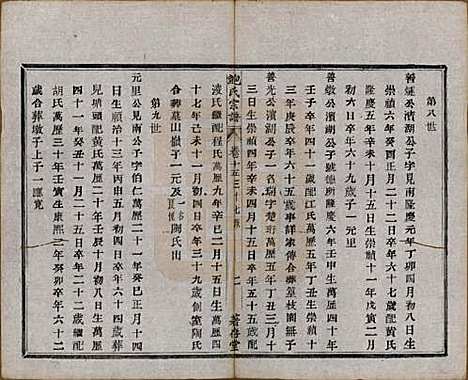 第八世
善延公濱湖公子字見南隆慶元年丁卯四月初八日生
崇禎六年癸酉正月二十二日卒年六十七歲配黄氏
隆慶五年辛未十月十五日生崇禎十一年戊寅二月
初六日卒年六十九歲子一元里
善敬公濱湖公子號德
萬曆六年壬申生萬曆四十年
壬子卒年四十一歲配江氏萬曆五年丁丑生崇禎十
三年庚辰卒年六十五歲事詳家傳合葬篁枝園無子
善光公濱湖公子一名瑞字楚珩萬曆五年丁丑三月十
三日生崇禎四年辛未四月十五日卒年五十五歲配
鮑氏宗譜
卷十五
二
著存堂
淩氏繼配程氏萬曆九年辛巳二月十五日生萬曆四
十七年己未十一月初四日卒年三十九歲側室陳氏
合葬墓山嶺子一元及
陶氏出
第九世
元里公見南公子字伯仁萬曆二十一年癸巳正月十四
日生順治十三年丙申五月初四日卒年六十四歲葬
兒塘頭配黄氏萬曆二十年壬辰十月初八日生萬曆
四十一年癸丑十一月二十五日卒年二十二歲繼配
胡氏萬曆三十年壬寅生康熙二年癸卯卒年六十二
歲合葬墩子上子一應寬